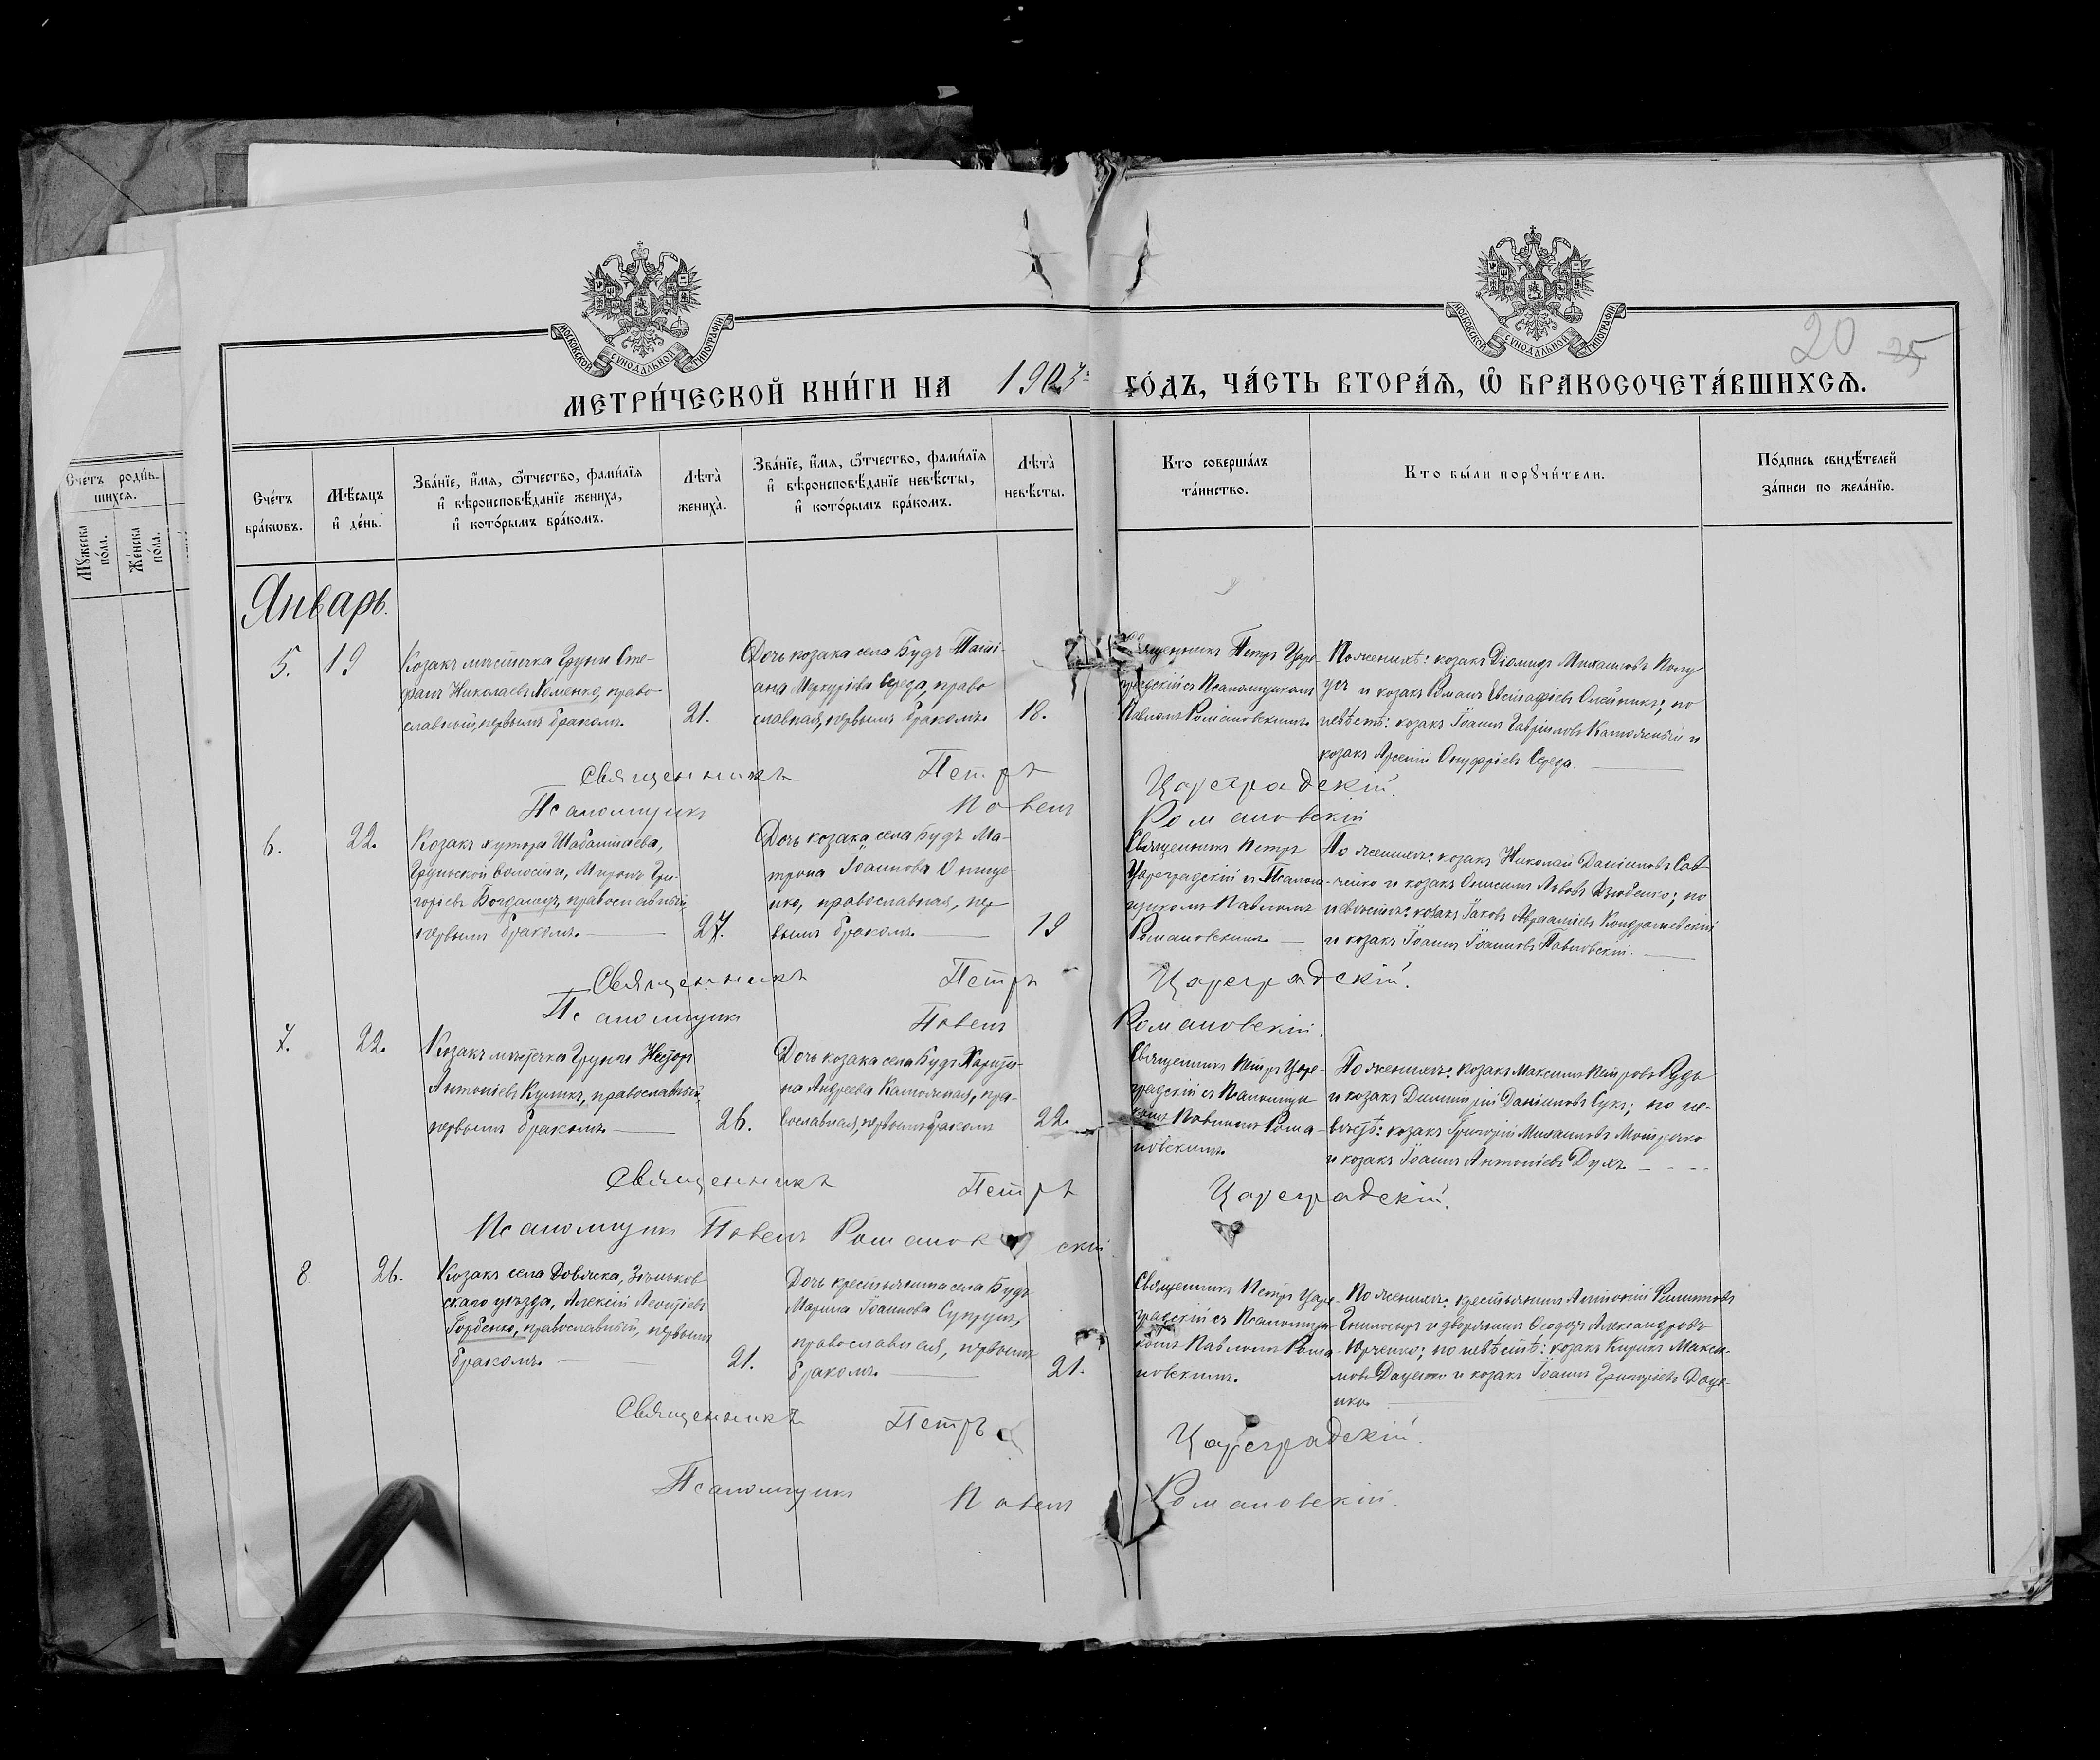 МОСКОВСКОЙ СУНОДАЛЬНОЙ ТИПОГРАФІИ
МОСКОВСКОЙ СУНОДАЛЬНОЙ ТИПОГРАФІИ
20 25
МЕТРИ́ЧЕСКОЙ КНИ́ГИ НА 1903 ГО́ДЪ, ЧА́СТЬ ВТОРА́Ѧ, Ѡ҆ БРАКОСОЧЕТА́ВШИХСѦ.
Сче́тъ роди́в-
шихсѧ.
Мꙋ́жеска
по́ла.
Же́нска
по́ла.
Сче́тъ
бра́кѡвъ.
Мѣ́сѧцъ
и҆ де́нь.
Зва́нїе, и҆́мѧ, ѻ҆́тчество, фами́лїѧ
и҆ вѣроисповѣ́данїе жениха̀,
и҆ кото́рымъ бра́комъ.
Лѣта̀
жениха̀.
Зва́нїе, и҆́мѧ, ѻ҆́тчество, фами́лїѧ
и҆ вѣроисповѣ́данїе невѣ́сты,
и҆ кото́рымъ бра́комъ.
Лѣта̀
невѣ́сты.
Кто соверша́лъ
та́инство.
Кто бы́ли порꙋчи́тели.
По́дпись свидѣ́телей
за́писи по жела́нїю.
Январь.
5.
19
Козакъ мѣстечка Груни Сте-
фанъ Николаевъ Хоменко, право-
славный, первымъ бракомъ.
21.
Дочь козака села Будъ Тати-
ана Меркуріева Середа, право
славная, первымъ бракомъ.
18.
Священникъ Петръ Царе-
градскій съ Псаломщикомъ
Павломъ Романовскимъ.
По женихѣ: козакъ Діомидъ Михаиловъ
и козакъ Романъ Евстафіевъ Олейникъ; по
невѣстѣ: козакъ Іоаннъ Гавріиловъ Катляный и
козакъ Арсеній Онуфріевъ Середа.
Священникъ Петръ Цареградскій.
Псаломщикъ Павелъ Романовскій
6.
22.
Козакъ хутора Шабалтаева,
Грунской волости, Миронъ Гри-
горіевъ Богдановъ, православный,
первымъ бракомъ.
27.
Дочь козака села Будъ Ма-
трона Іоаннова Онище-
нко, православная, пер
вымъ бракомъ.
19
Священникъ Петръ
Цареградскій съ Псалом-
щикомъ Павломъ
Романовскимъ
По женихѣ: козакъ Николай Даніиловъ Сав-
ченко и козакъ Онисимъ Львовъ Дзюбенко; по
невѣстѣ: козакъ Іаковъ Авраамiевъ Кондрашевскій
и козакъ Іоаннъ Іоанновъ Павловскій.
Священникъ Петръ Цареградскій.
Псаломщикъ Павелъ Романовскій.
7.
22.
Козакъ мѣстечка Груни Несторъ
Антоніевъ Куликъ, православный,
первымъ бракомъ
26.
Дочь козака села Будъ Харити-
на Андреева Катляная, пра-
вославная, первымъ бракомъ
22.
Священникъ Петръ Царе-
градскій съ Псаломщи
комъ Павломъ Рома-
новскимъ.
По женихѣ: козакъ Максимъ Петровъ Рудь
и козакъ Димитрій Даніиловъ Сукъ; по не-
вѣстѣ: козакъ Григорій Михаиловъ Мотречко
и козакъ Іоаннъ Антоніевъ Духъ
Священникъ Петръ Цареградскій.
Псаломщикъ Павелъ Романовскій
8
26.
Козакъ села Довжка, Зѣньков
скаго уѣзда, Алексій Леонтіевъ
Горбенко, православный, первымъ
бракомъ.
21.
Дочь крестьянина села Будъ
Марина Іоаннова Супрунъ,
православная, первымъ
бракомъ.
21.
Священникъ Петръ Царе-
градскій съ Псаломщи-
комъ Павломъ Рома-
новскимъ.
По женихѣ: крестьянинъ Антоній Филипповъ
Гнилосыръ и дворянинъ Ѳеодоръ Александровъ
Юрченко; по невѣстѣ: козакъ Кирикъ Макси-
мовъ Даценко и козакъ Іоаннъ Григоріевъ Даце-
нко.
Священникъ Петръ Цареградскій.
Псаломщикъ Павелъ Романовскій.